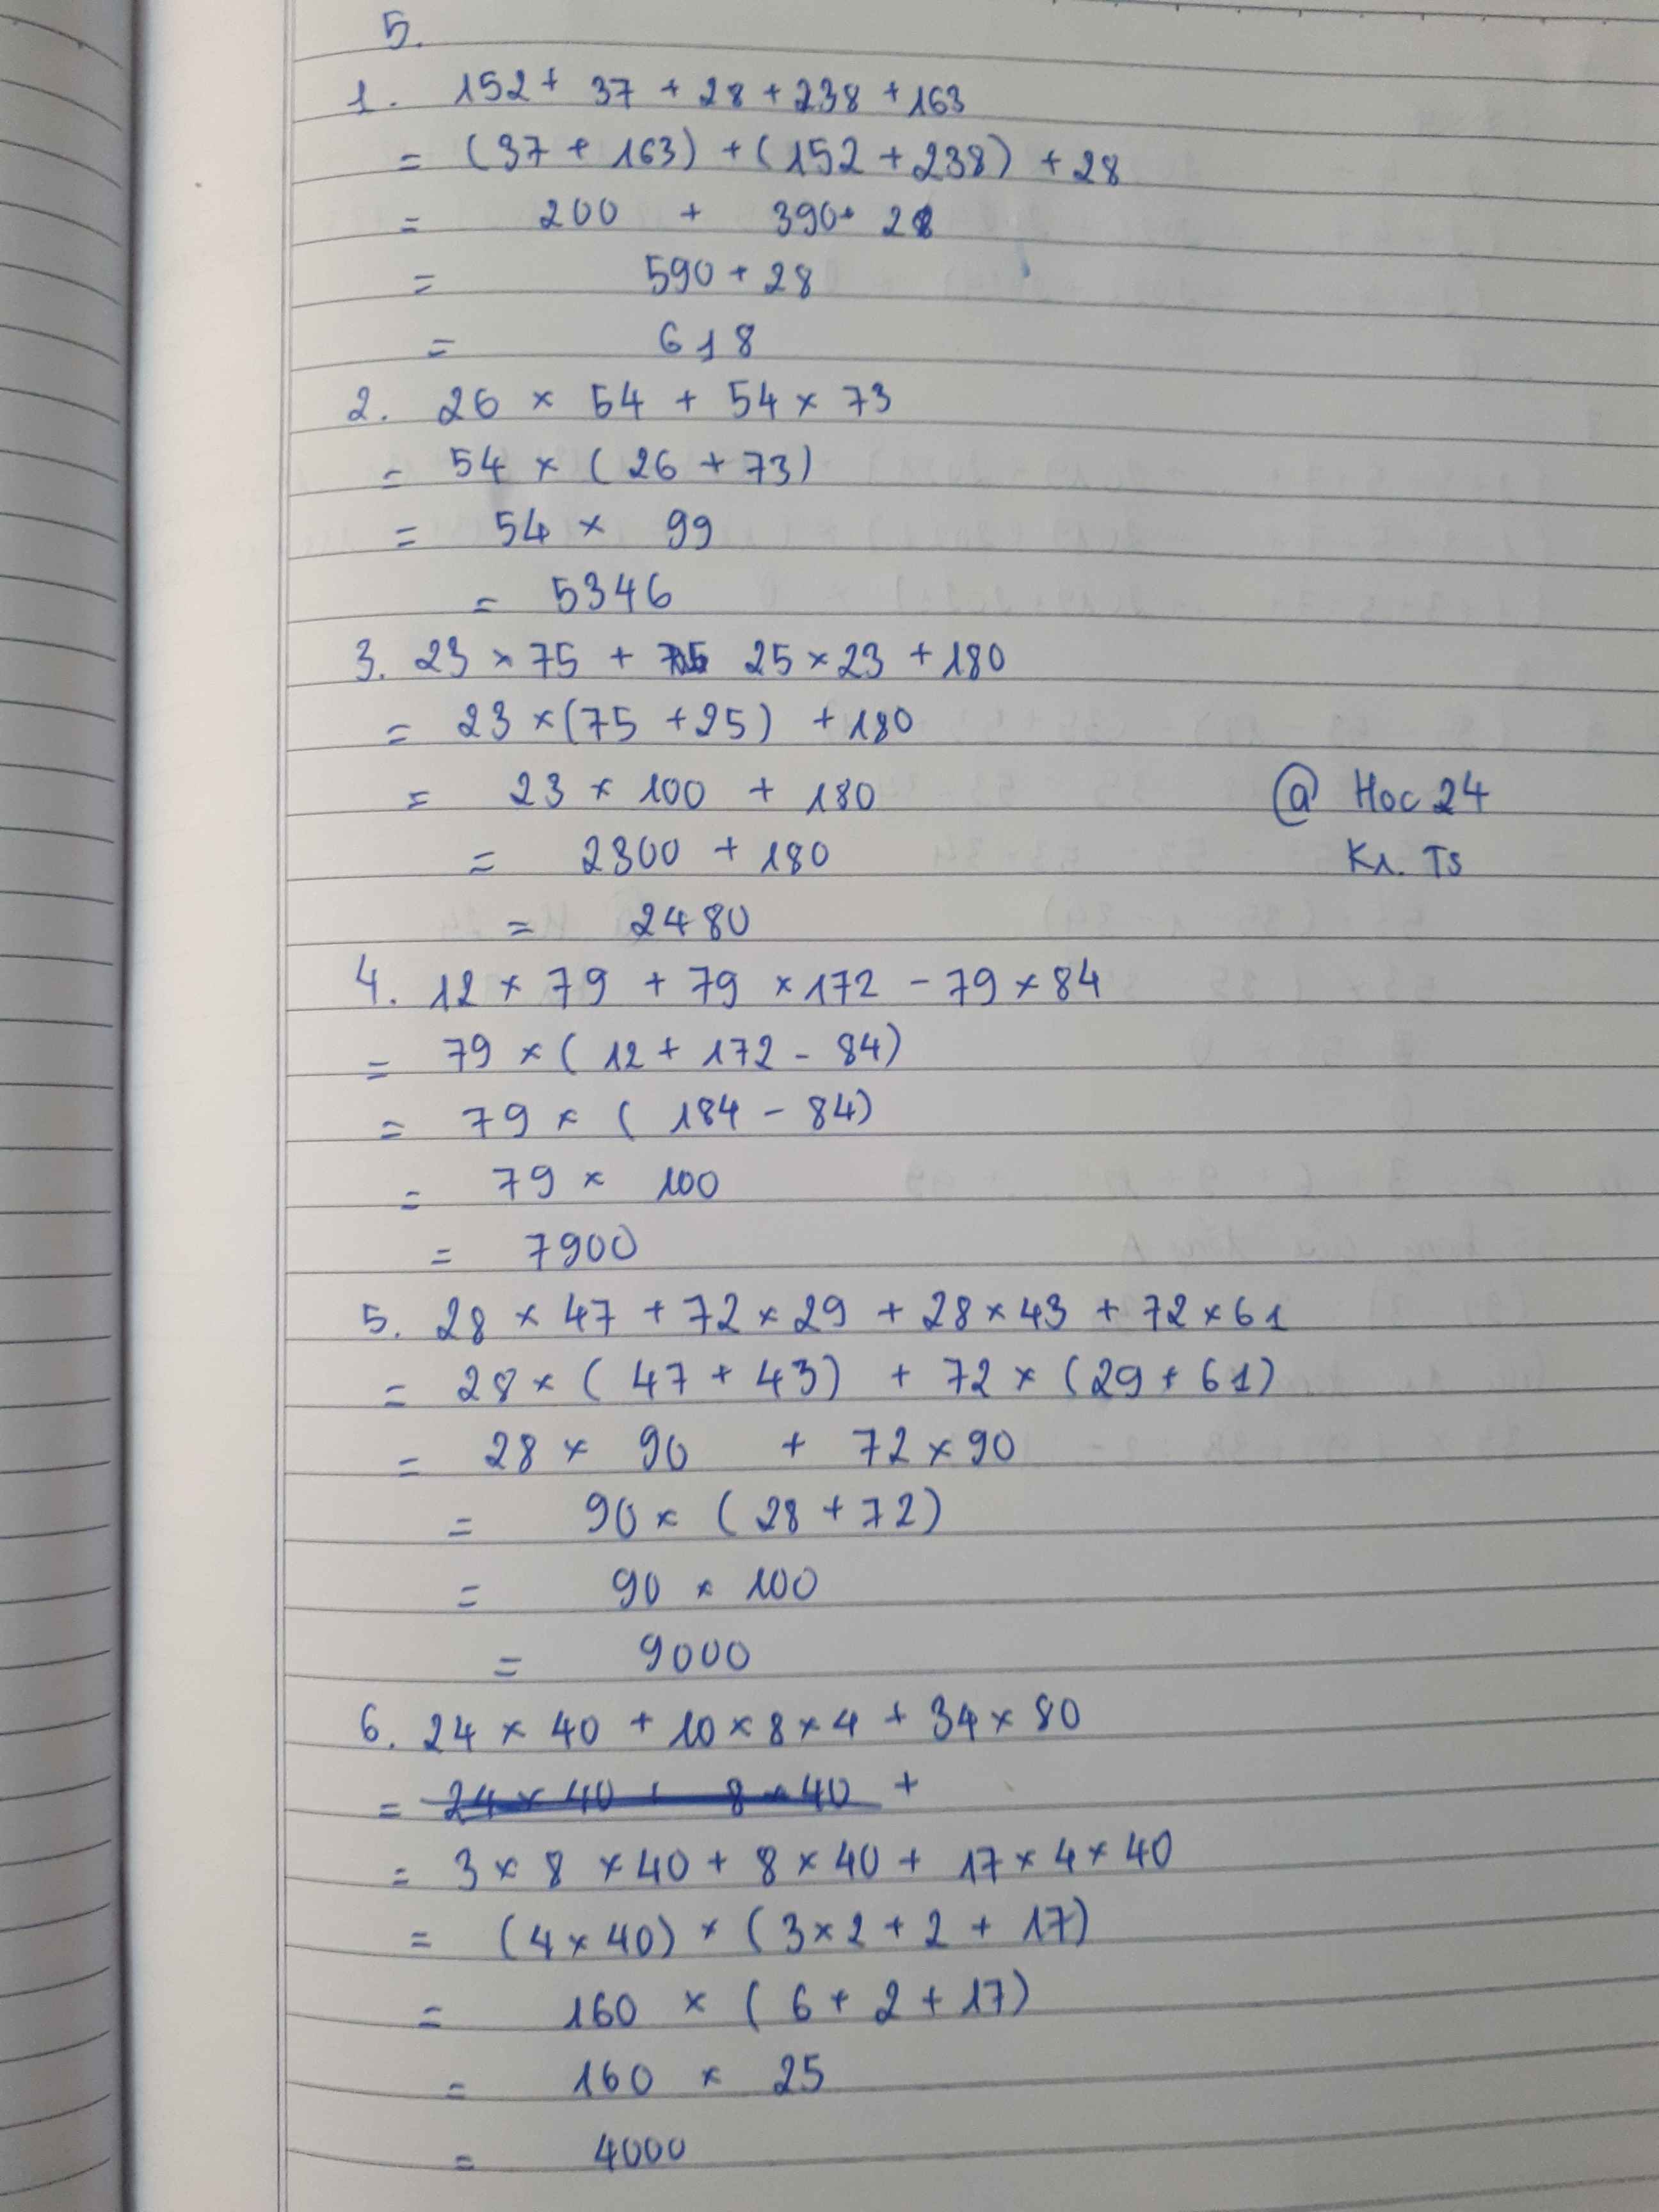 5.
1. 152 + 37 + 28 + 238 + 163
= (37 + 163) + (152 + 238) + 28
= 200 + 390 + 28
= 590 + 28
= 618
2. 26 × 54 + 54 × 73
= 54 × (26 + 73)
= 54 × 99
= 5346
3. 23 × 75 + 25 × 23 + 180
= 23 × (75 + 25) + 180
= 23 × 100 + 180
@ Hoc 24
= 2300 + 180
K1. TS
= 2480
4. 12 × 79 + 79 × 172 - 79 × 84
= 79 × (12 + 172 - 84)
= 79 × (184 - 84)
= 79 × 100
= 7900
5. 28 × 47 + 72 × 29 + 28 × 43 + 72 × 61
= 28 × (47 + 43) + 72 × (29 + 61)
= 28 × 90 + 72 × 90
= 90 × (28 + 72)
= 90 × 100
= 9000
6. 24 × 40 + 10 × 8 × 4 + 34 × 80
= 24 × 40 + 8 × 40 +
= 3 × 8 × 40 + 8 × 40 + 17 × 4 × 40
= (4 × 40) × (3 × 2 + 2 + 17)
= 160 × (6 + 2 + 17)
= 160 × 25
= 4000